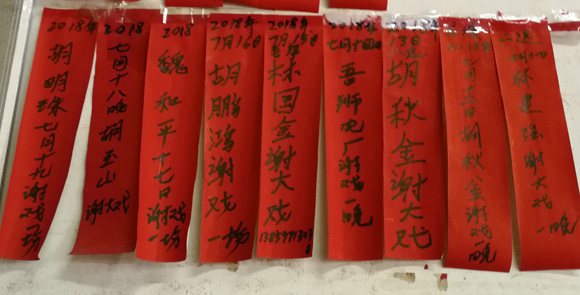 2018年
胡明珠七月十九谢戏一场
2018
七月十八晚胡玉山谢大戏
2018
魏和平十七日谢戏一场
2018年
7月16日
胡鹏鸿谢戏一场
2018年
7月15日
林国金谢大戏
2018年
七月十四日
吾狮电厂谢戏一晚
13日
胡秋金谢大戏
2018年
七月十二日胡秋金谢戏一晚
林建强谢大戏一晚